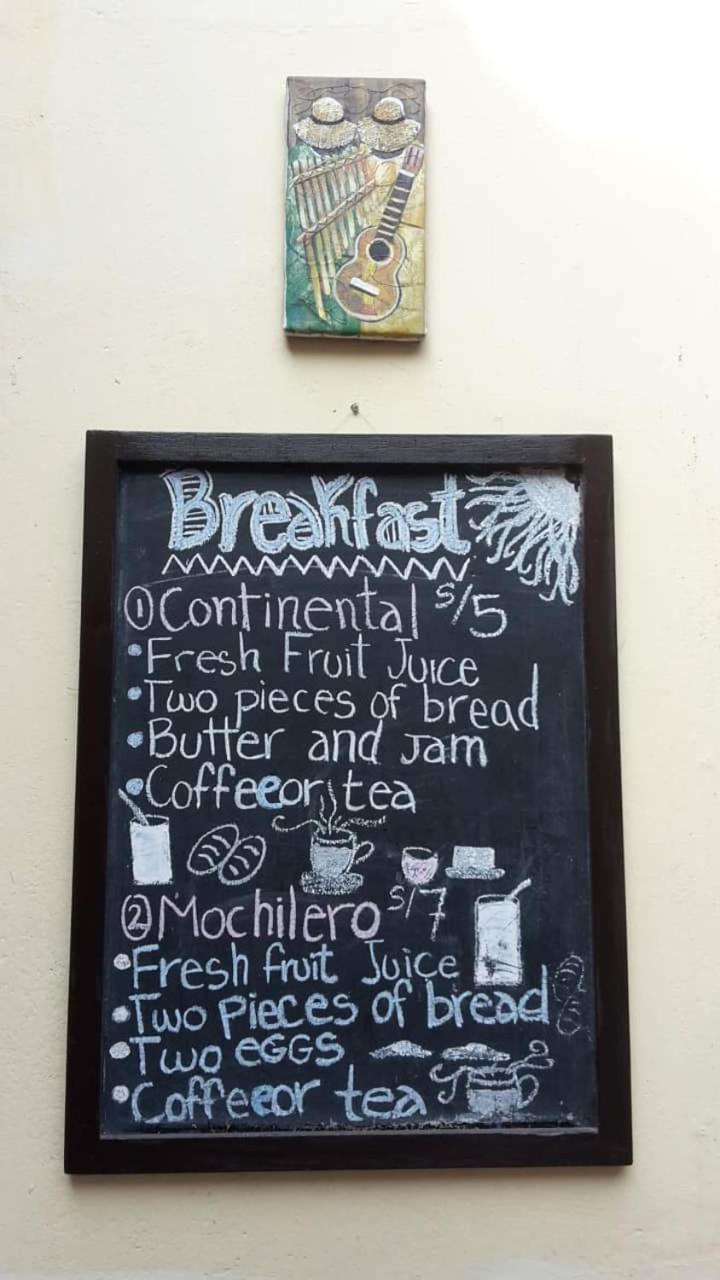 Breakfast
① Continental S/5
• Fresh Fruit Juice
• Two pieces of bread
• Butter and Jam
• Coffeeeor tea
② Mochilero S/7
• Fresh fruit Juice
• Two Pieces of bread
• Two eGGS
• Coffeeeor tea